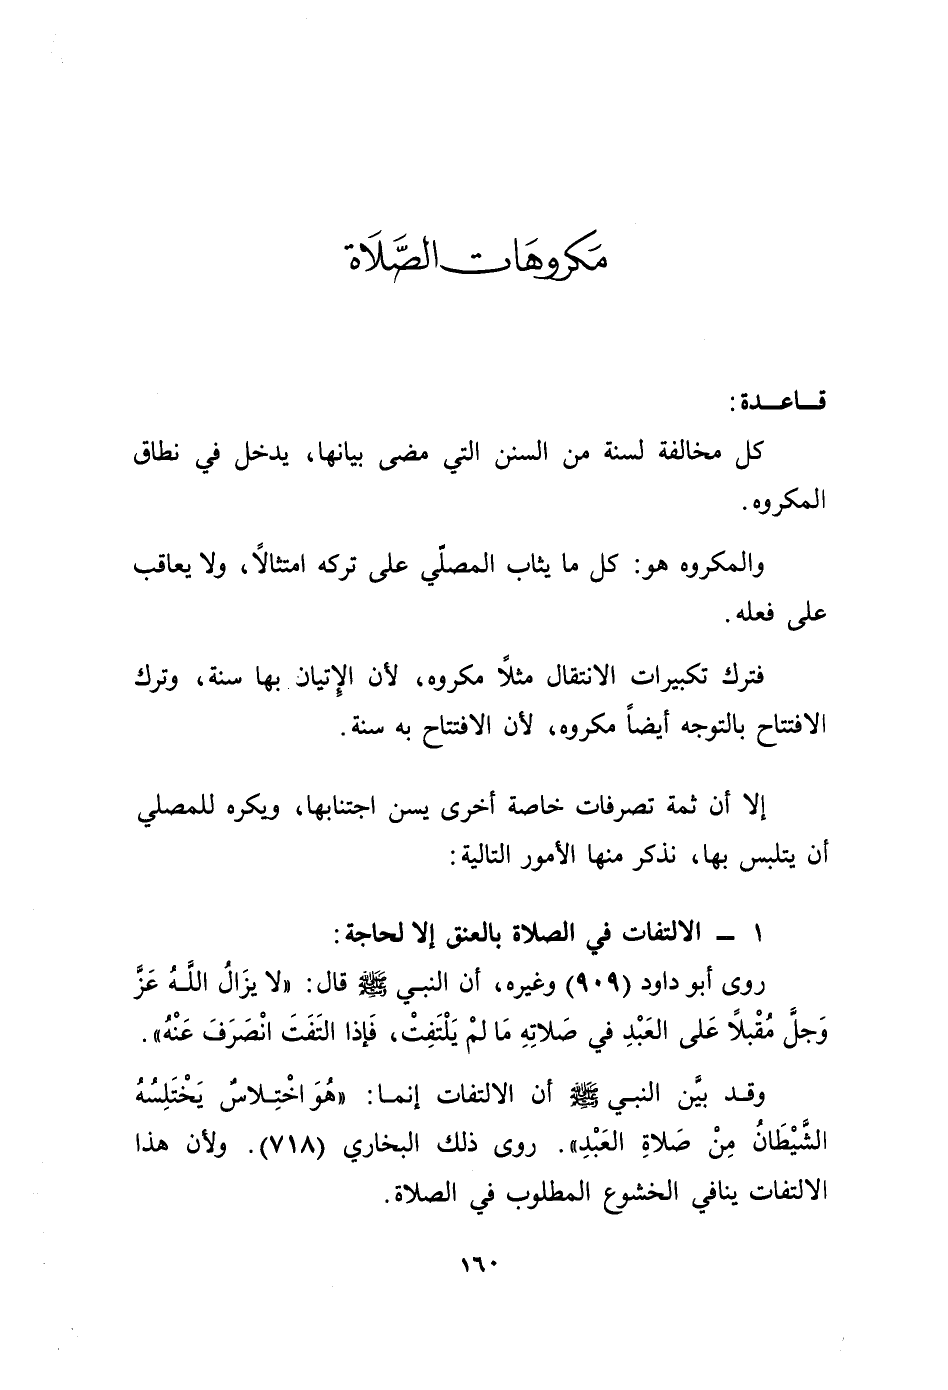 مَكروهَات الصَّلَاة
قاعدة:
كل مخالفة لسنة من السنن التي مضى بيانها، يدخل في نطاق
المكروه.
والمكروه هو: كل ما يثاب المصلّي على تركه امتثالاً، ولا يعاقب
على فعله.
فترك تكبيرات الانتقال مثلاً مكروه، لأن الإتيان بها سنة، وترك
الافتتاح بالتوجه أيضاً مكروه، لأن الافتتاح به سنة.
إلا أن ثمة تصرفات خاصة أخرى يسن اجتنابها، ويكره للمصلي
أن يتلبس بها، نذكر منها الأمور التالية:
١ - الالتفات في الصلاة بالعنق إلا لحاجة:
روى أبو داود (٩٠٩) وغيره، أن النبي ﷺ قال: «لا يزَالُ اللَّهُ عَزَّ
وَجلَّ مُقْبلاً عَلى العَبْدِ في صَلاتِهِ مَا لمْ يَلْتَفِتْ، فَإذا التَفَتَ انْصَرَفَ عَنْهُ».
وقد بيَّن النبي ﷺ أن الالتفات إنما: «هُوَ اخْتِلاسٌ يَخْتَلِسُهُ
الشَّيْطَانُ مِنْ صَلاةِ العَبْدِ». روى ذلك البخاري (٧١٨). ولأن هذا
الالتفات ينافي الخشوع المطلوب في الصلاة.
١٦٠